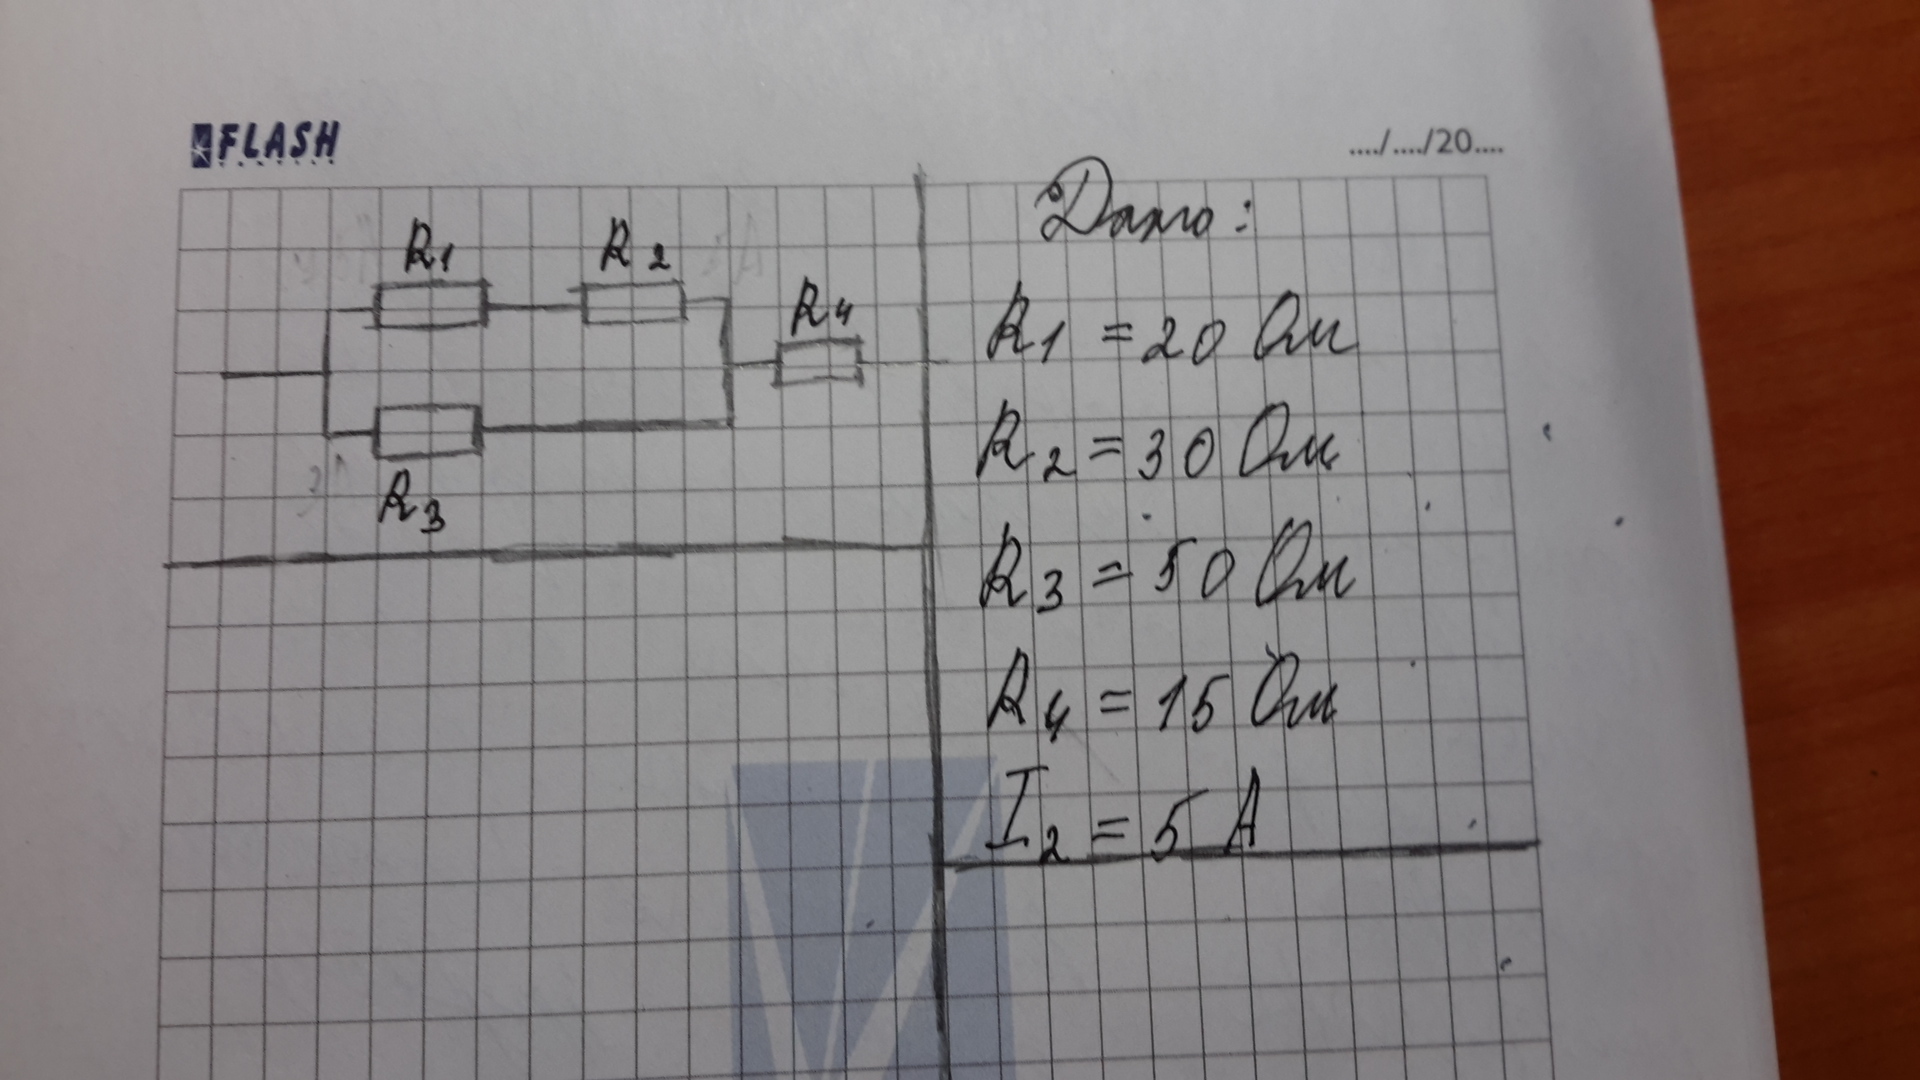 FLASH
..../..../20....
R1 R2
R4
R3
Дано:
R1 = 20 Ом
R2 = 30 Ом
R3 = 50 Ом
R4 = 15 Ом
I2 = 5 А